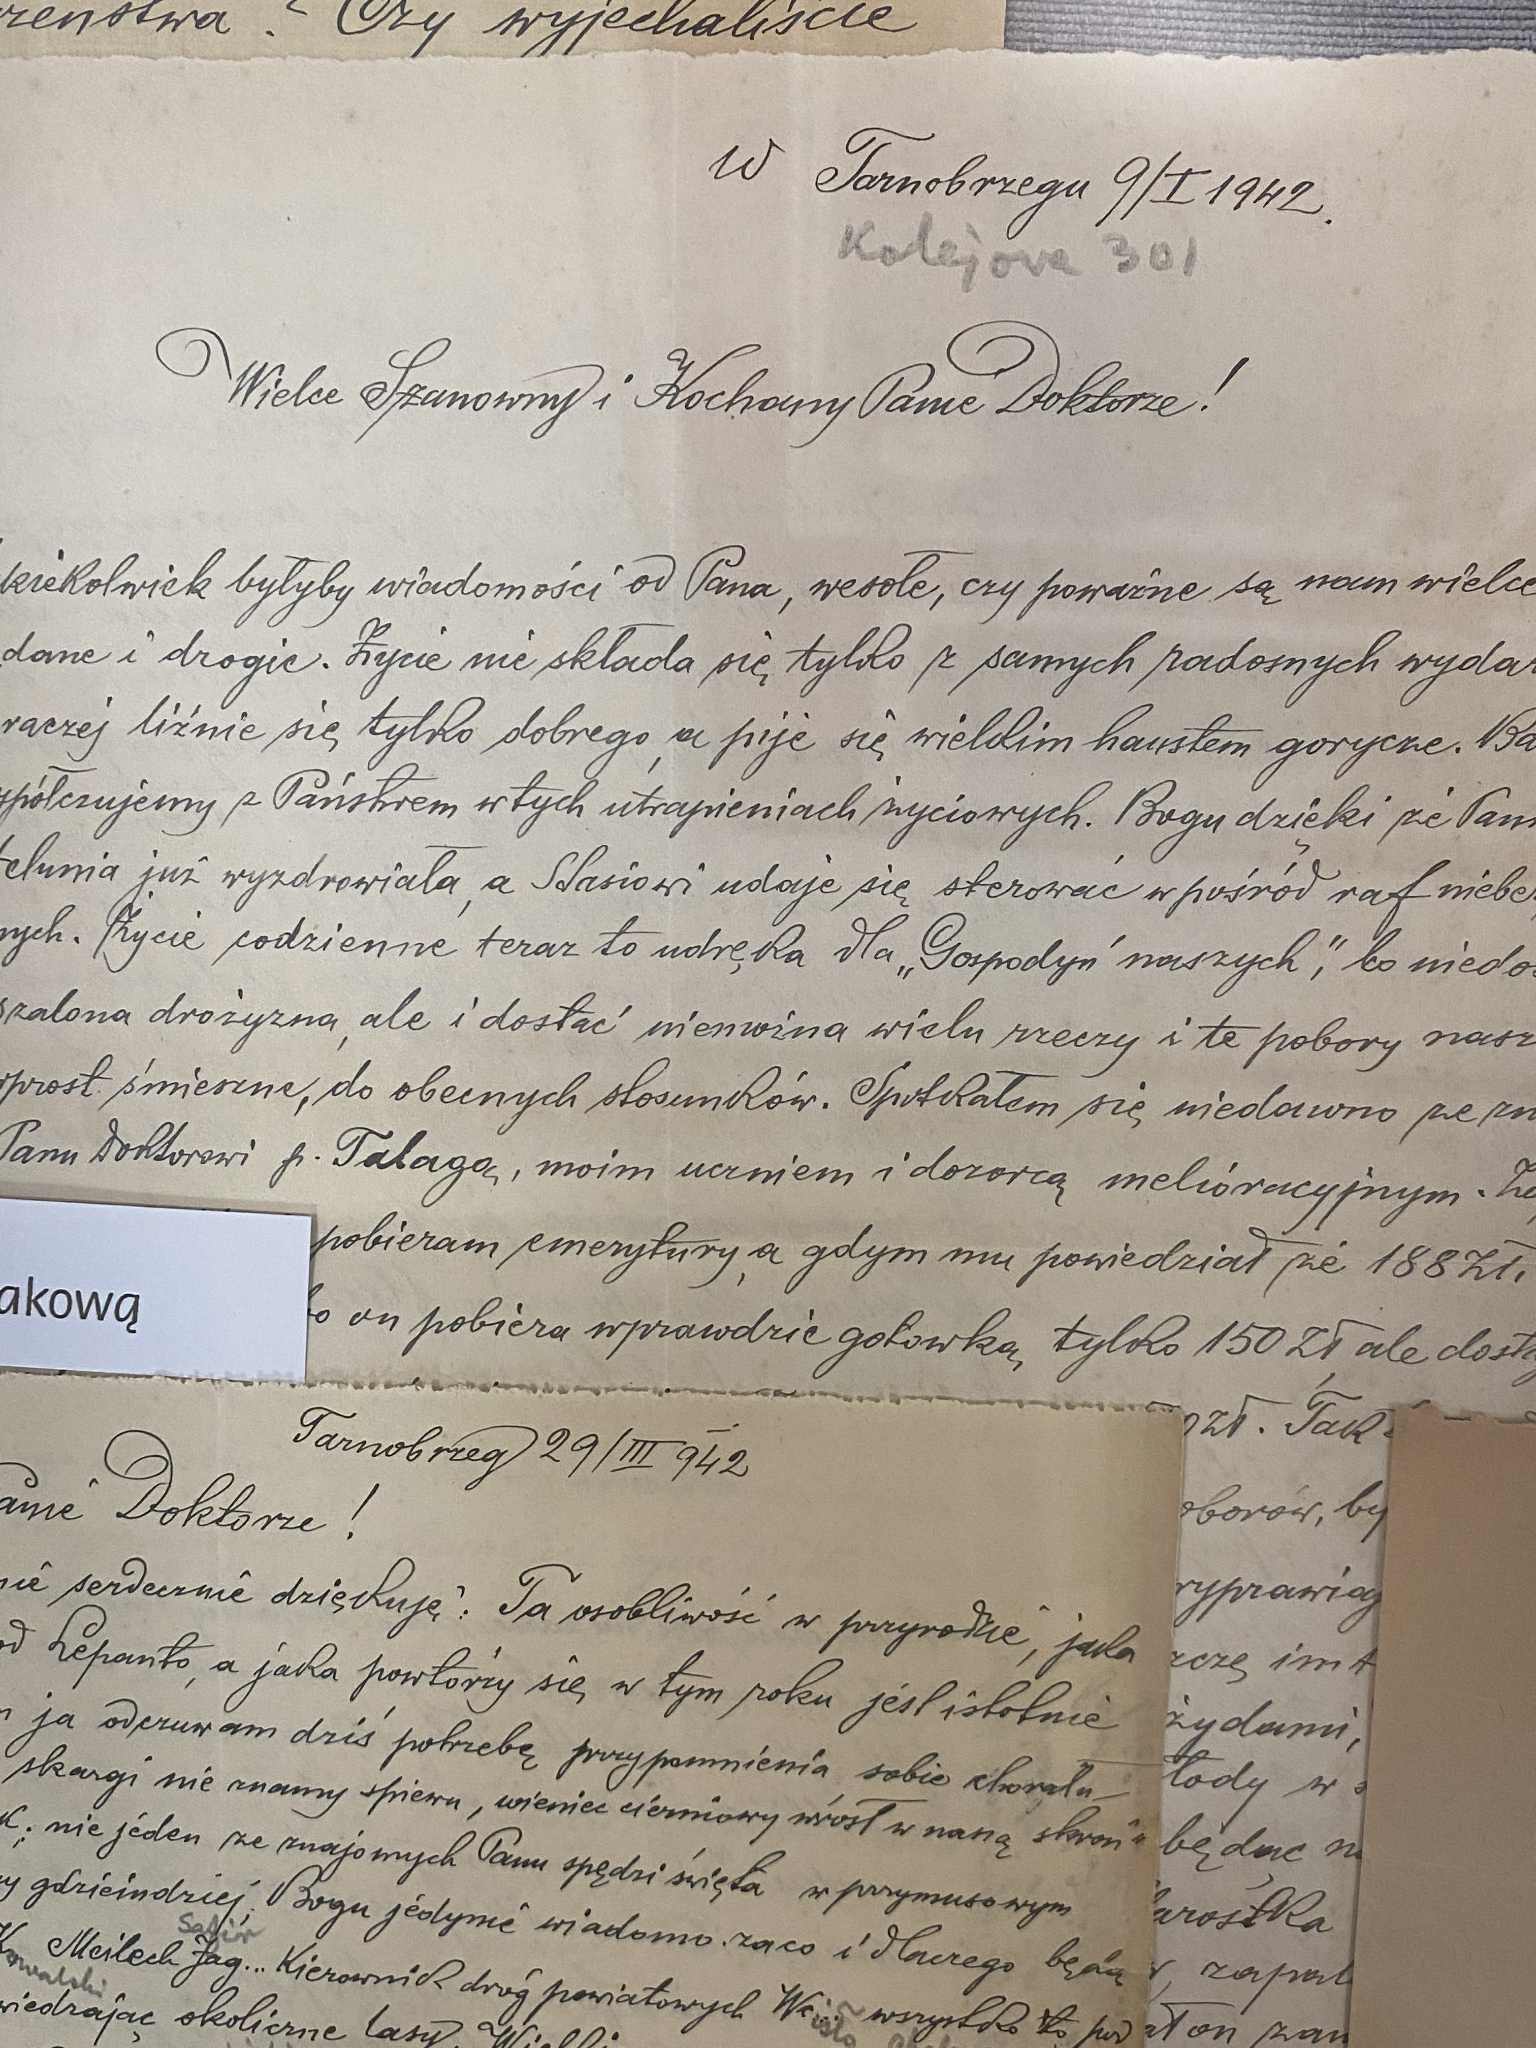 rzeństwa? Czy wyjechaliście
w Tarnobrzegu 9/I 1942.
Kolejova 301
Wielce Szanowny i Kochany Panie Doktorze!
kiekolwiek byłyby wiadomości od Pana, wesołe, czy poważne są nam wielce
dane i drogie. Życie nie składa się tylko z samych radosnych wydar
raczej liźnie się tylko dobrego, a pije się wielkim haustem gorycze. Ba
spółczujemy z Państwem w tych utrapieniach życiowych. Bogu dzięki że Pani
telunia już wyzdrowiała, a Stasiowi udaje się sterować w pośród raf niebe
nych. Życie codzienne teraz to udręka dla „Gospodyń naszych”, bo niedo
szalona drożyzna, ale i dostać niemożna wielu rzeczy i te pobory nasz
prost śmieszne, do obecnych stosunków. Spotkałem się niedawno ze zn
Panu Doktorowi p. Talagą, moim uczniem i dozorcą melioracyjnym.
pobieram emerytury, a gdym mu powiedział że 188 zł.
akową
bo on pobiera wprawdzie gotówką, tylko 150 zł ale dosta
zł. Tak
oborów, by
ryprawią
rczę im t
żydami,
łody w
będąc
larostka
zapał
ał on zam
Tarnobrzeg 29/III 942
anie Doktorze!
nie serdecznie dziękuję: Ta osobliwość w przyrodzie, jaka
od Lepanto, a jaka powtórzy się w tym roku jest istotnie
ja odczuwam dziś potrzebę przypomnienia sobie chorału
skargi nie znamy śpiewu, wieniec cierniowy wrósł w naszą skroń"
k; nie jeden ze znajomych Panu spędzi święta w przymusowym
y gdzieindziej, Bogu jedynie wiadomo zaco i dlaczego będą
Safir
K Meilech Jag... Kierownik dróg powiatowych We... wszystko to pod
Kowalski
wiedzając okoliczne lasy.